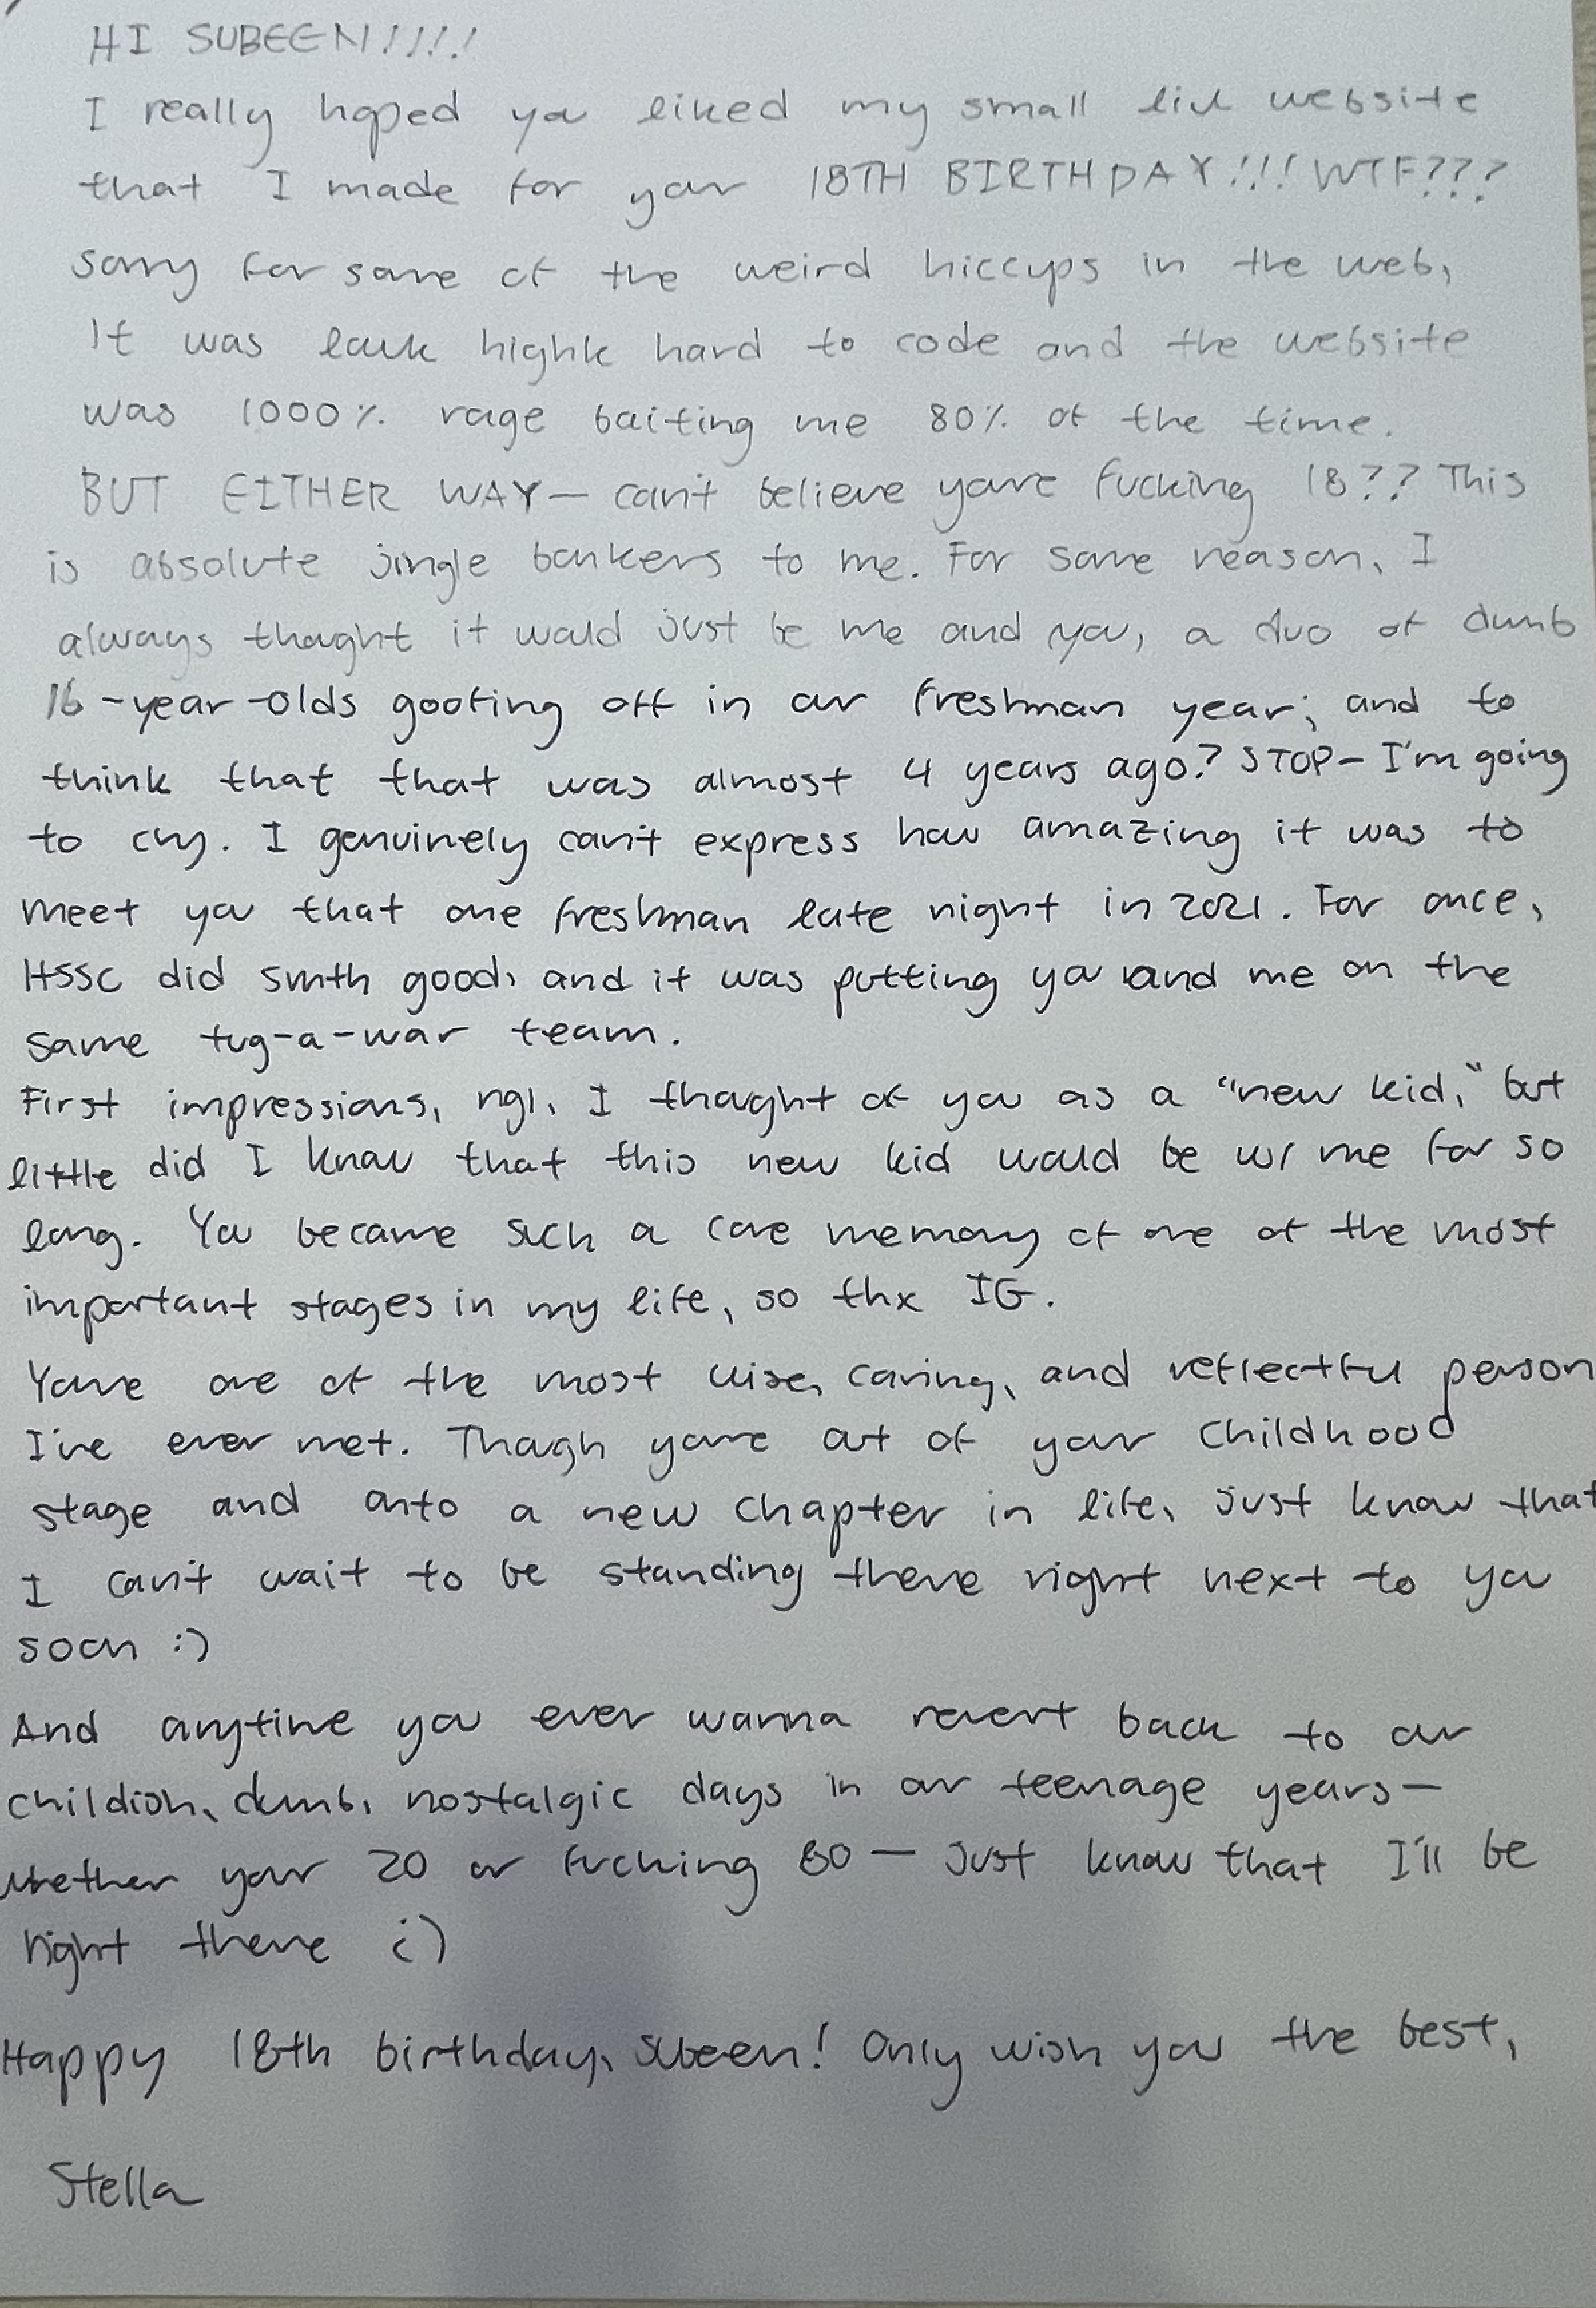 HI SUBEEN!!!!
I really hoped you liked my small lil website
that I made for your 18TH BIRTHDAY!!! WTF???
sorry for some of the weird hiccups in the web,
It was highk hard to code and the website
was 1000% rage baiting me 80% of the time.
BUT EITHER WAY— can't believe you're fucking 18?? This
is absolute jingle bonkers to me. For some reason, I
always thought it would just be me and you, a duo of dumb
16-year-olds goofing off in our freshman year; and to
think that that was almost 4 years ago? STOP– I'm going
to cry. I genuinely can't express how amazing it was to
meet you that one freshman late night in 2021. For once,
HSSC did smth good, and it was putting you and me on the
same tug-a-war team.
First impressions, ngl, I thought of you as a "new kid," but
little did I know that this new kid would be w/ me for so
long. You became such a core memory of one of the most
important stages in my life, so thx IG.
You're one of the most wise, caring, and reflectful person
I've ever met. Though you're out of your childhood
stage and onto a new chapter in life, just know that
I can't wait to be standing there right next to you
soon :)
And anytime you ever wanna revert back to our
childish, dumb, nostalgic days in our teenage years—
whether your 20 or fucking 80 — just know that I'll be
right there :)
Happy 18th birthday, Subeen! Only wish you the best,
Stella